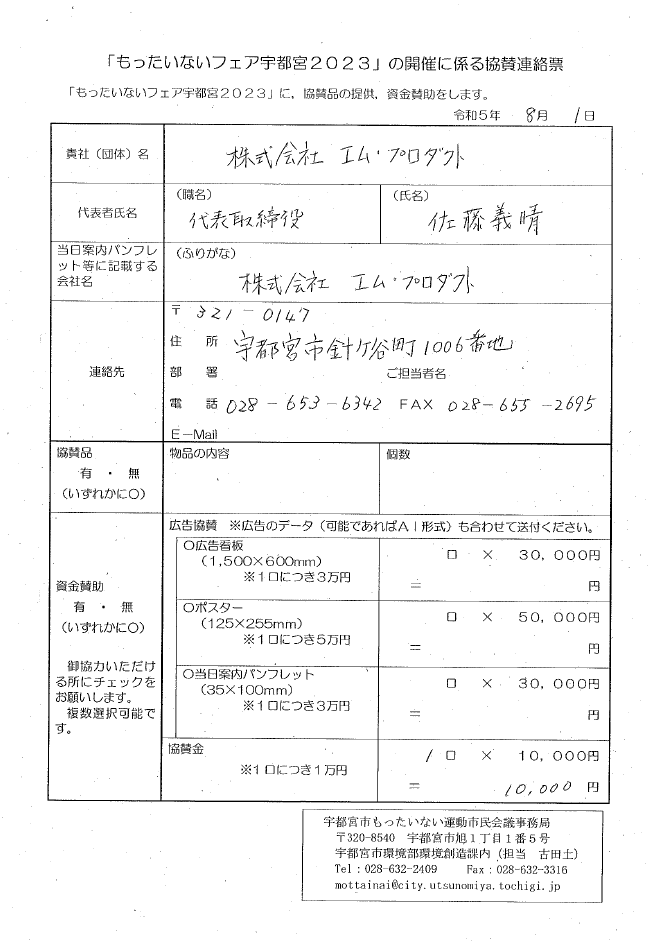 「もったいないフェア宇都宮2023」の開催に係る協賛連絡票
「もったいないフェア宇都宮2023」に、協賛品の提供、資金賛助をします。
令和5年 8月 1日
貴社（団体）名
株式会社 エム・プロダクト
代表者氏名
（職名）
代表取締役
（氏名）
佐藤義晴
当日案内パンフレ
ット等に記載する
会社名
（ふりがな）
株式会社 エム・プロダクト
連絡先
〒 321-0147
住 所 宇都宮市針ケ谷町1006番地
部 署 ご担当者名
電 話 028-653-6342 FAX 028-655-2695
E-Mail
協賛品
有 ・ 無
（いずれかに○）
物品の内容
個数
資金賛助
有 ・ 無
（いずれかに○）
御協力いただけ
る所にチェックを
お願いします。
複数選択可能で
す。
広告協賛 ※広告のデータ（可能であればAI形式）も合わせて送付ください。
○広告看板
（1,500×600mm）
※1口につき3万円
口 × 30,000円
= 円
○ポスター
（125×255mm）
※1口につき5万円
口 × 50,000円
= 円
○当日案内パンフレット
（35×100mm）
※1口につき3万円
口 × 30,000円
= 円
協賛金
※1口につき1万円
1 口 × 10,000円
= 10,000 円
宇都宮市もったいない運動市民会議事務局
〒320-8540 宇都宮市旭1丁目1番5号
宇都宮市環境部環境創造課内（担当 古田土）
Tel：028-632-2409 Fax：028-632-3316
mottainai@city.utsunomiya.tochigi.jp